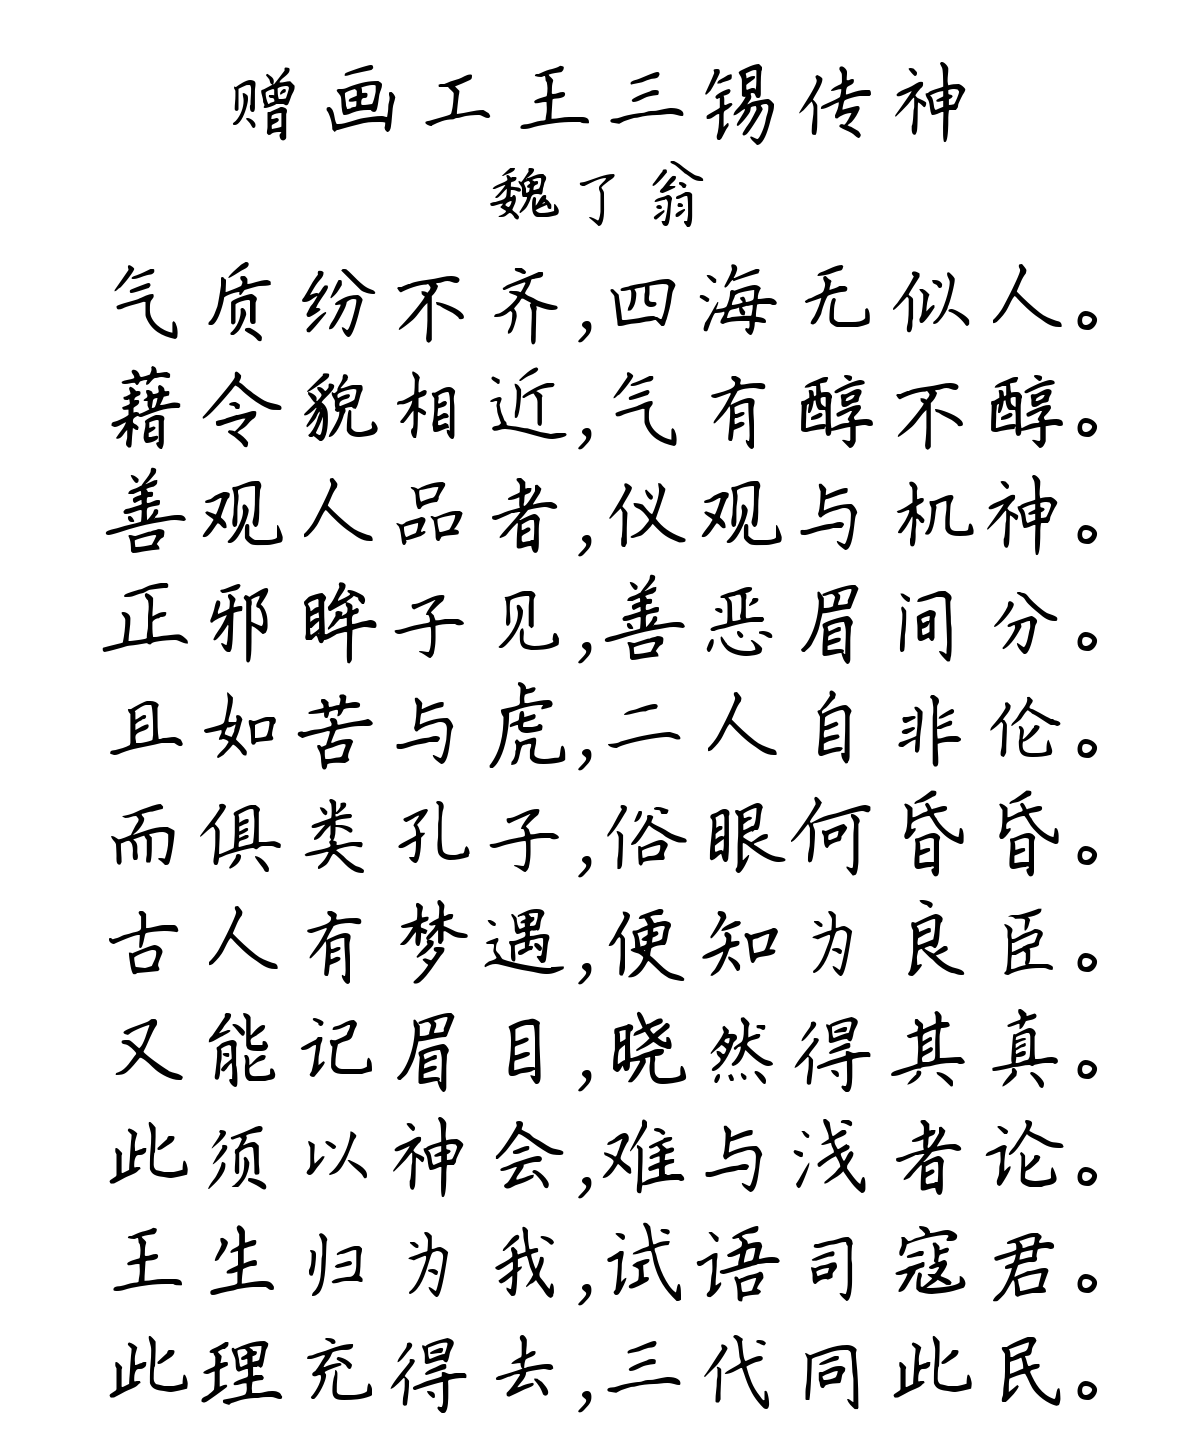 赠画工王三锡传神
魏了翁
气质纷不齐,四海无似人。
藉令貌相近,气有醇不醇。
善观人品者,仪观与机神。
正邪眸子见,善恶眉间分。
且如苦与虎,二人自非伦。
而俱类孔子,俗眼何昏昏。
古人有梦遇,便知为良臣。
又能记眉目,晓然得其真。
此须以神会,难与浅者论。
王生归为我,试语司寇君。
此理充得去,三代同此民。